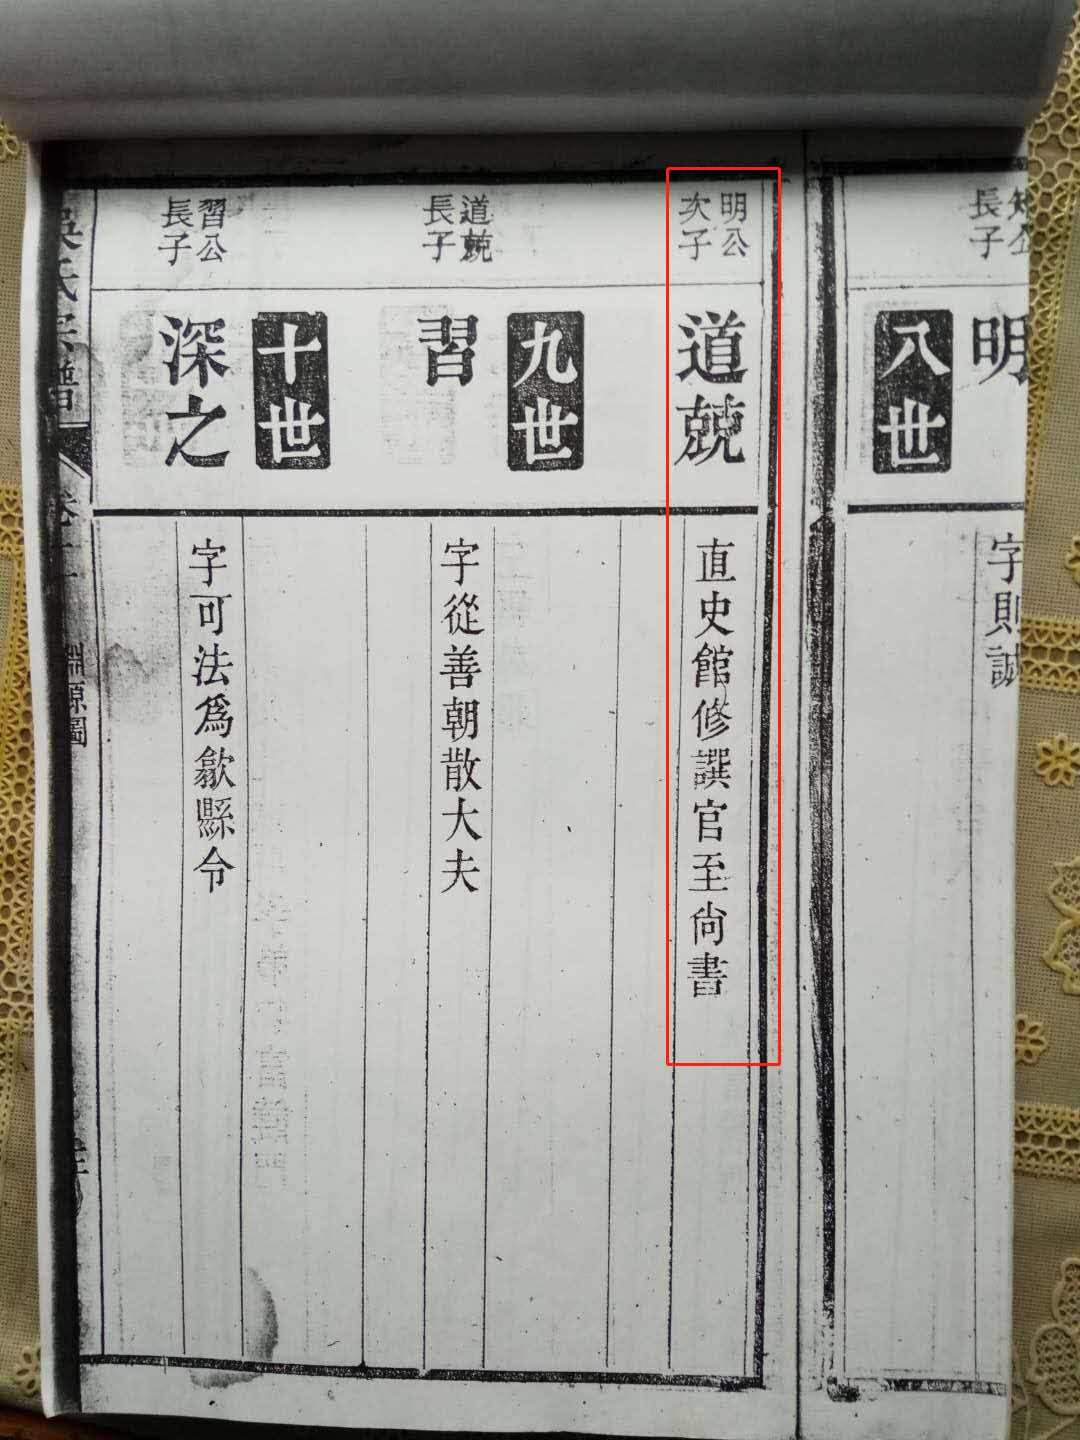 長子
明
字則誠
八世
明公
次子
道兢
直史館修譔官至尙書
九世
道兢
長子
習
字從善朝散大夫
十世
習公
長子
深之
字可法爲歙縣令
淵源圖